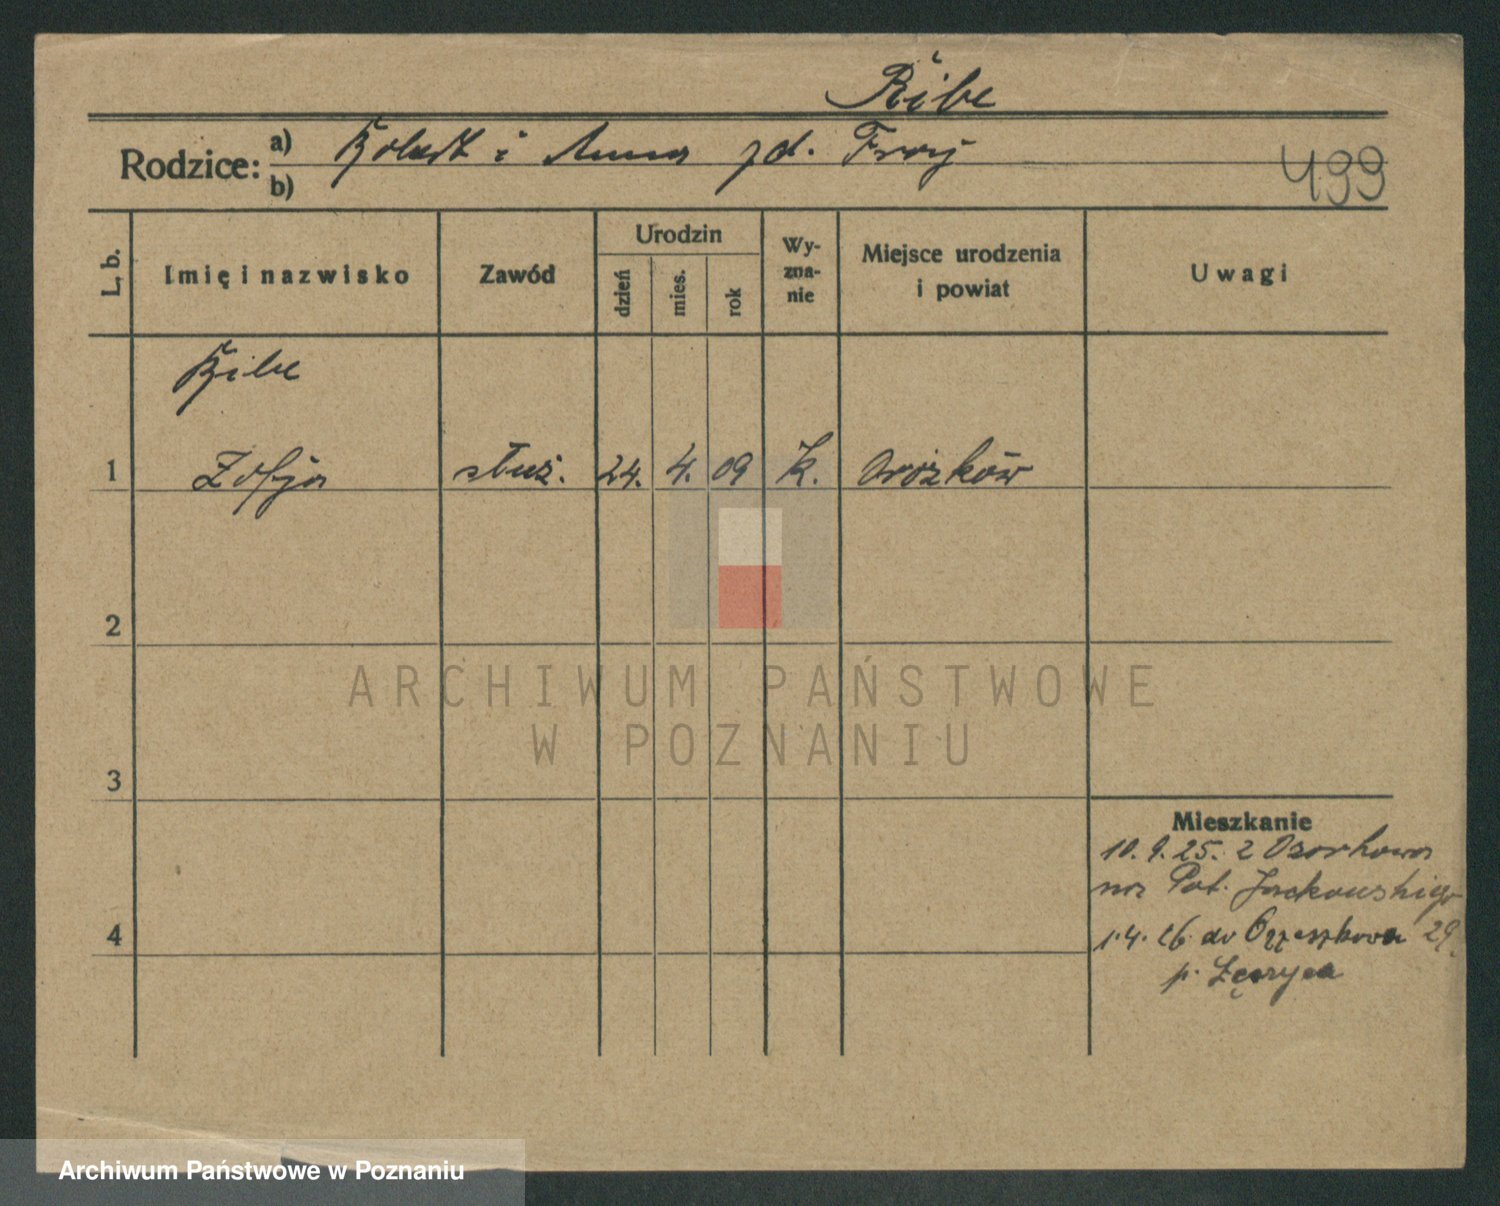 Ribe
Rodzice: a) Robert i Anna zd. Frej
b)
499
L. b.
Imię i nazwisko
Zawód
Urodzin
dzień
mies.
rok
Wyzna-
nie
Miejsce urodzenia
i powiat
Uwagi
Ribe
1 Zofja służ. 24. 4. 09 k.
2
3
4
Mieszkanie
10. 9. 25. z Ozorkowa
na Pat. Jackowskiego
1. 4. 26. do Orzeszkowa 29.
p. Łęczyca
ARCHIWUM PAŃSTWOWE
W POZNANIU
Archiwum Państwowe w Poznaniu